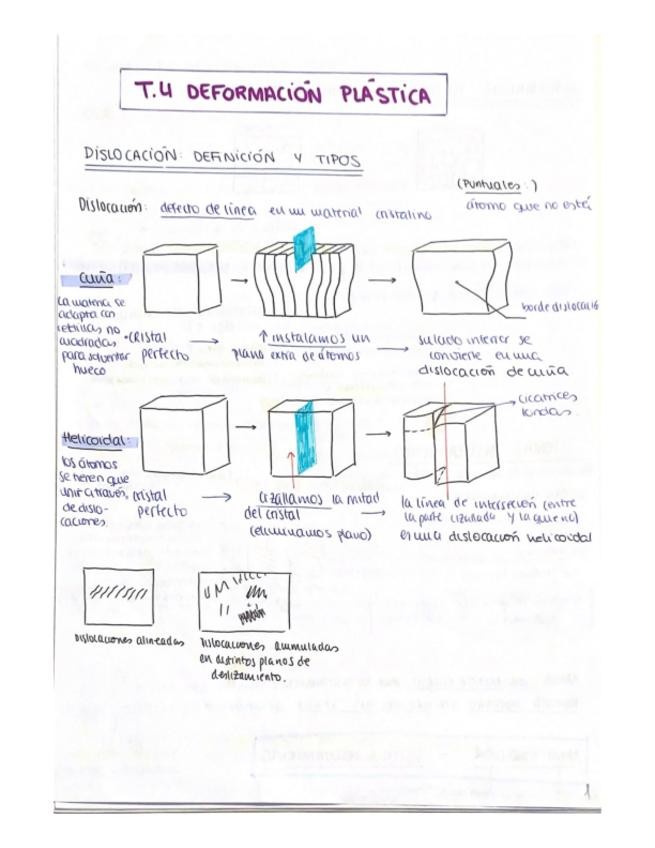 T.4 DEFORMACIÓN PLÁSTICA
DISLOCACIÓN: DEFINICIÓN Y TIPOS
(Puntuales:)
átomo que no está
Dislocación: defecto de línea en un material cristalino
Cuña:
La materia se
adapta con
no
cuadradas
para solventar
hueco
cristal
perfecto
↑ instalamos un
plano extra de átomos
su lado inferior se
convierte en una
dislocación de cuña
borde
Helicoidal:
los átomos
se tienen que
unir a través
de dislo-
caciones
cristal
perfecto
cizallamos la mitad
del cristal
(eliminamos plano)
cicatrices
la línea de intersección (entre
la parte cizallada y la que no)
es una dislocación helicoidal
Dislocaciones alineadas
Dislocaciones acumuladas
en distintos planos de
deslizamiento.
1